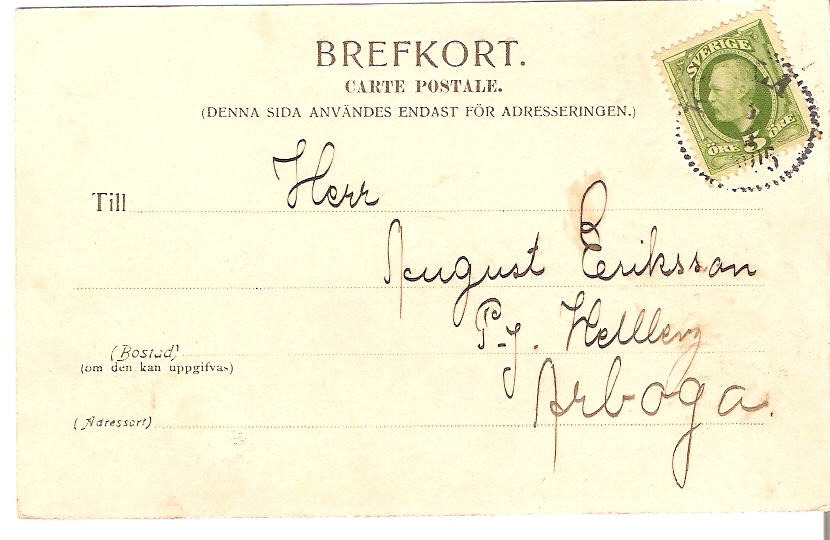 BREFKORT.
CARTE POSTALE.
(DENNA SIDA ANVÄNDES ENDAST FÖR ADRESSERINGEN.)
SVERIGE
ÖRE 5 ÖRE
Till Herr
August Eriksson
P-g.
(Bostad)
(om den kan uppgifvas)
Arboga.
(Adressort)